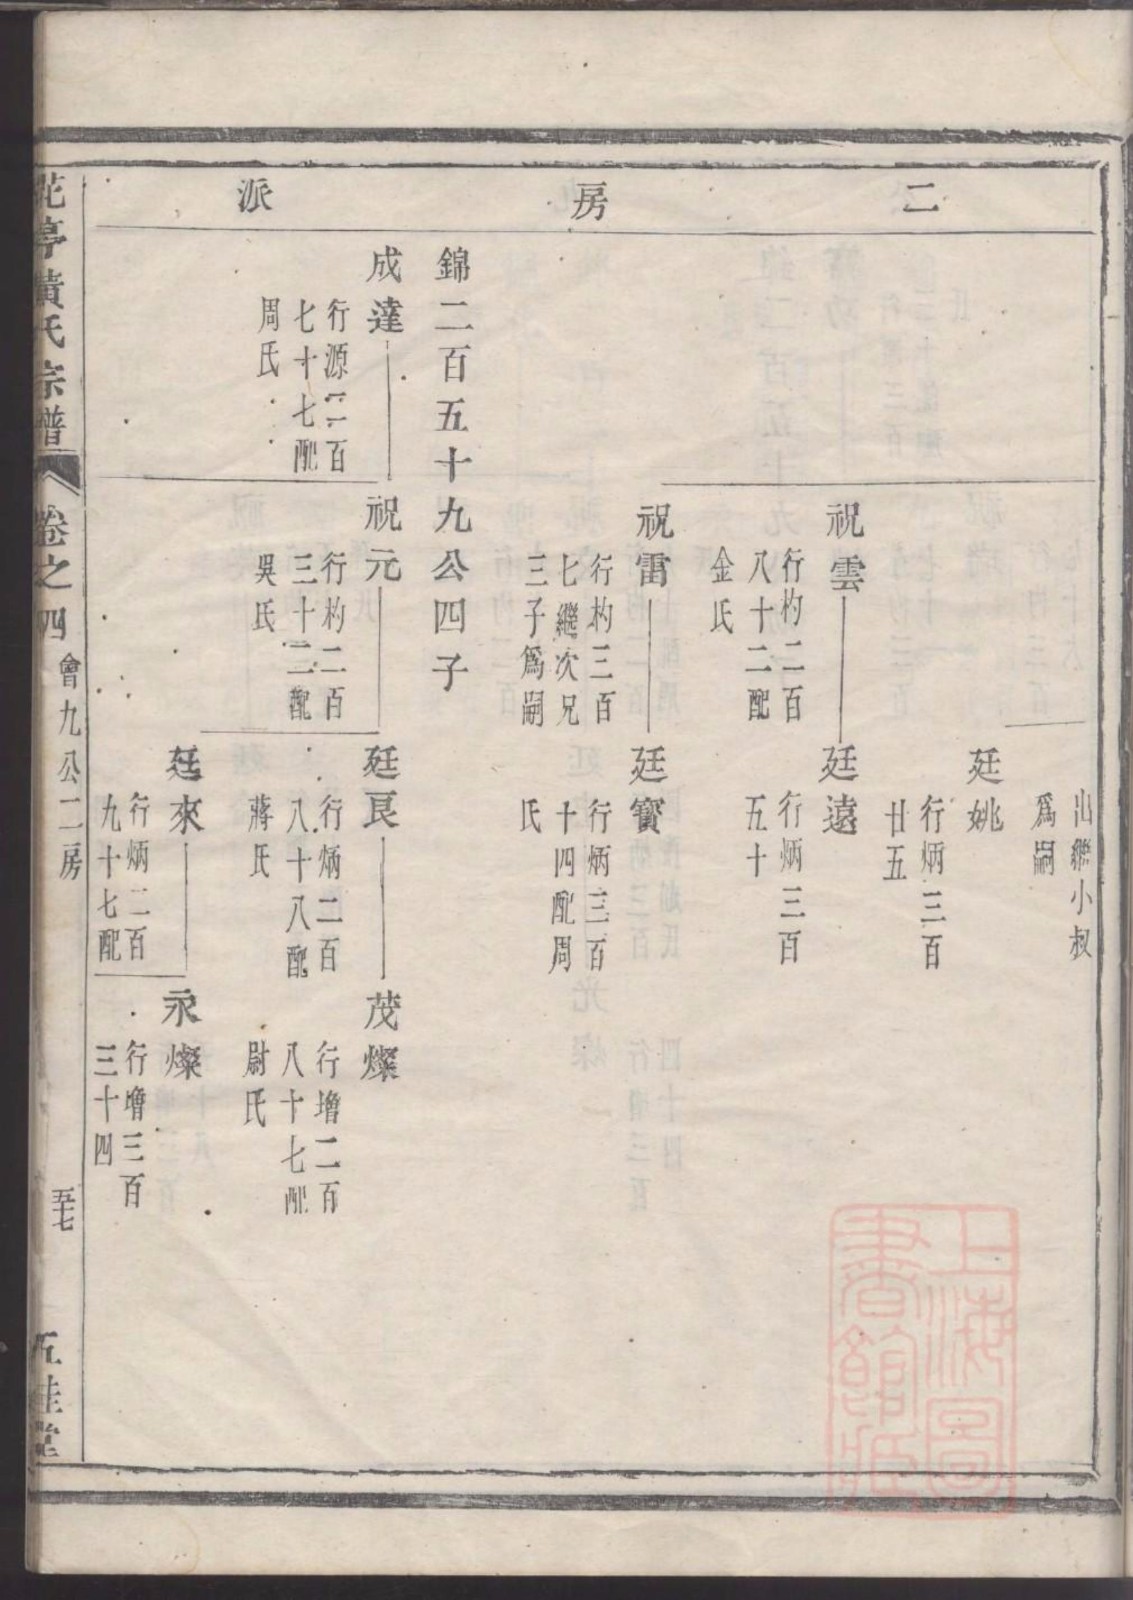 二房派
出繼小叔
爲嗣
廷姚
行炳三百
廿五
祝雲
行杓二百
八十二配
金氏
廷遠
行炳三百
五十
祝雷
行杓三百
七繼次兄
三子爲嗣
廷寶
行炳三百
十四配周
氏
錦二百五十九公四子
成達
行源二百
七十七配
周氏
祝元
行杓二百
三十二配
吳氏
廷良
行炳二百
八十八配
蔣氏
茂燦
行增二百
八十七配
尉氏
廷來
行炳二百
九十七配
永燦
行增三百
三十四
花亭黃氏宗譜
卷之四
會九公二房
五十七
五桂堂
上海圖
書館藏